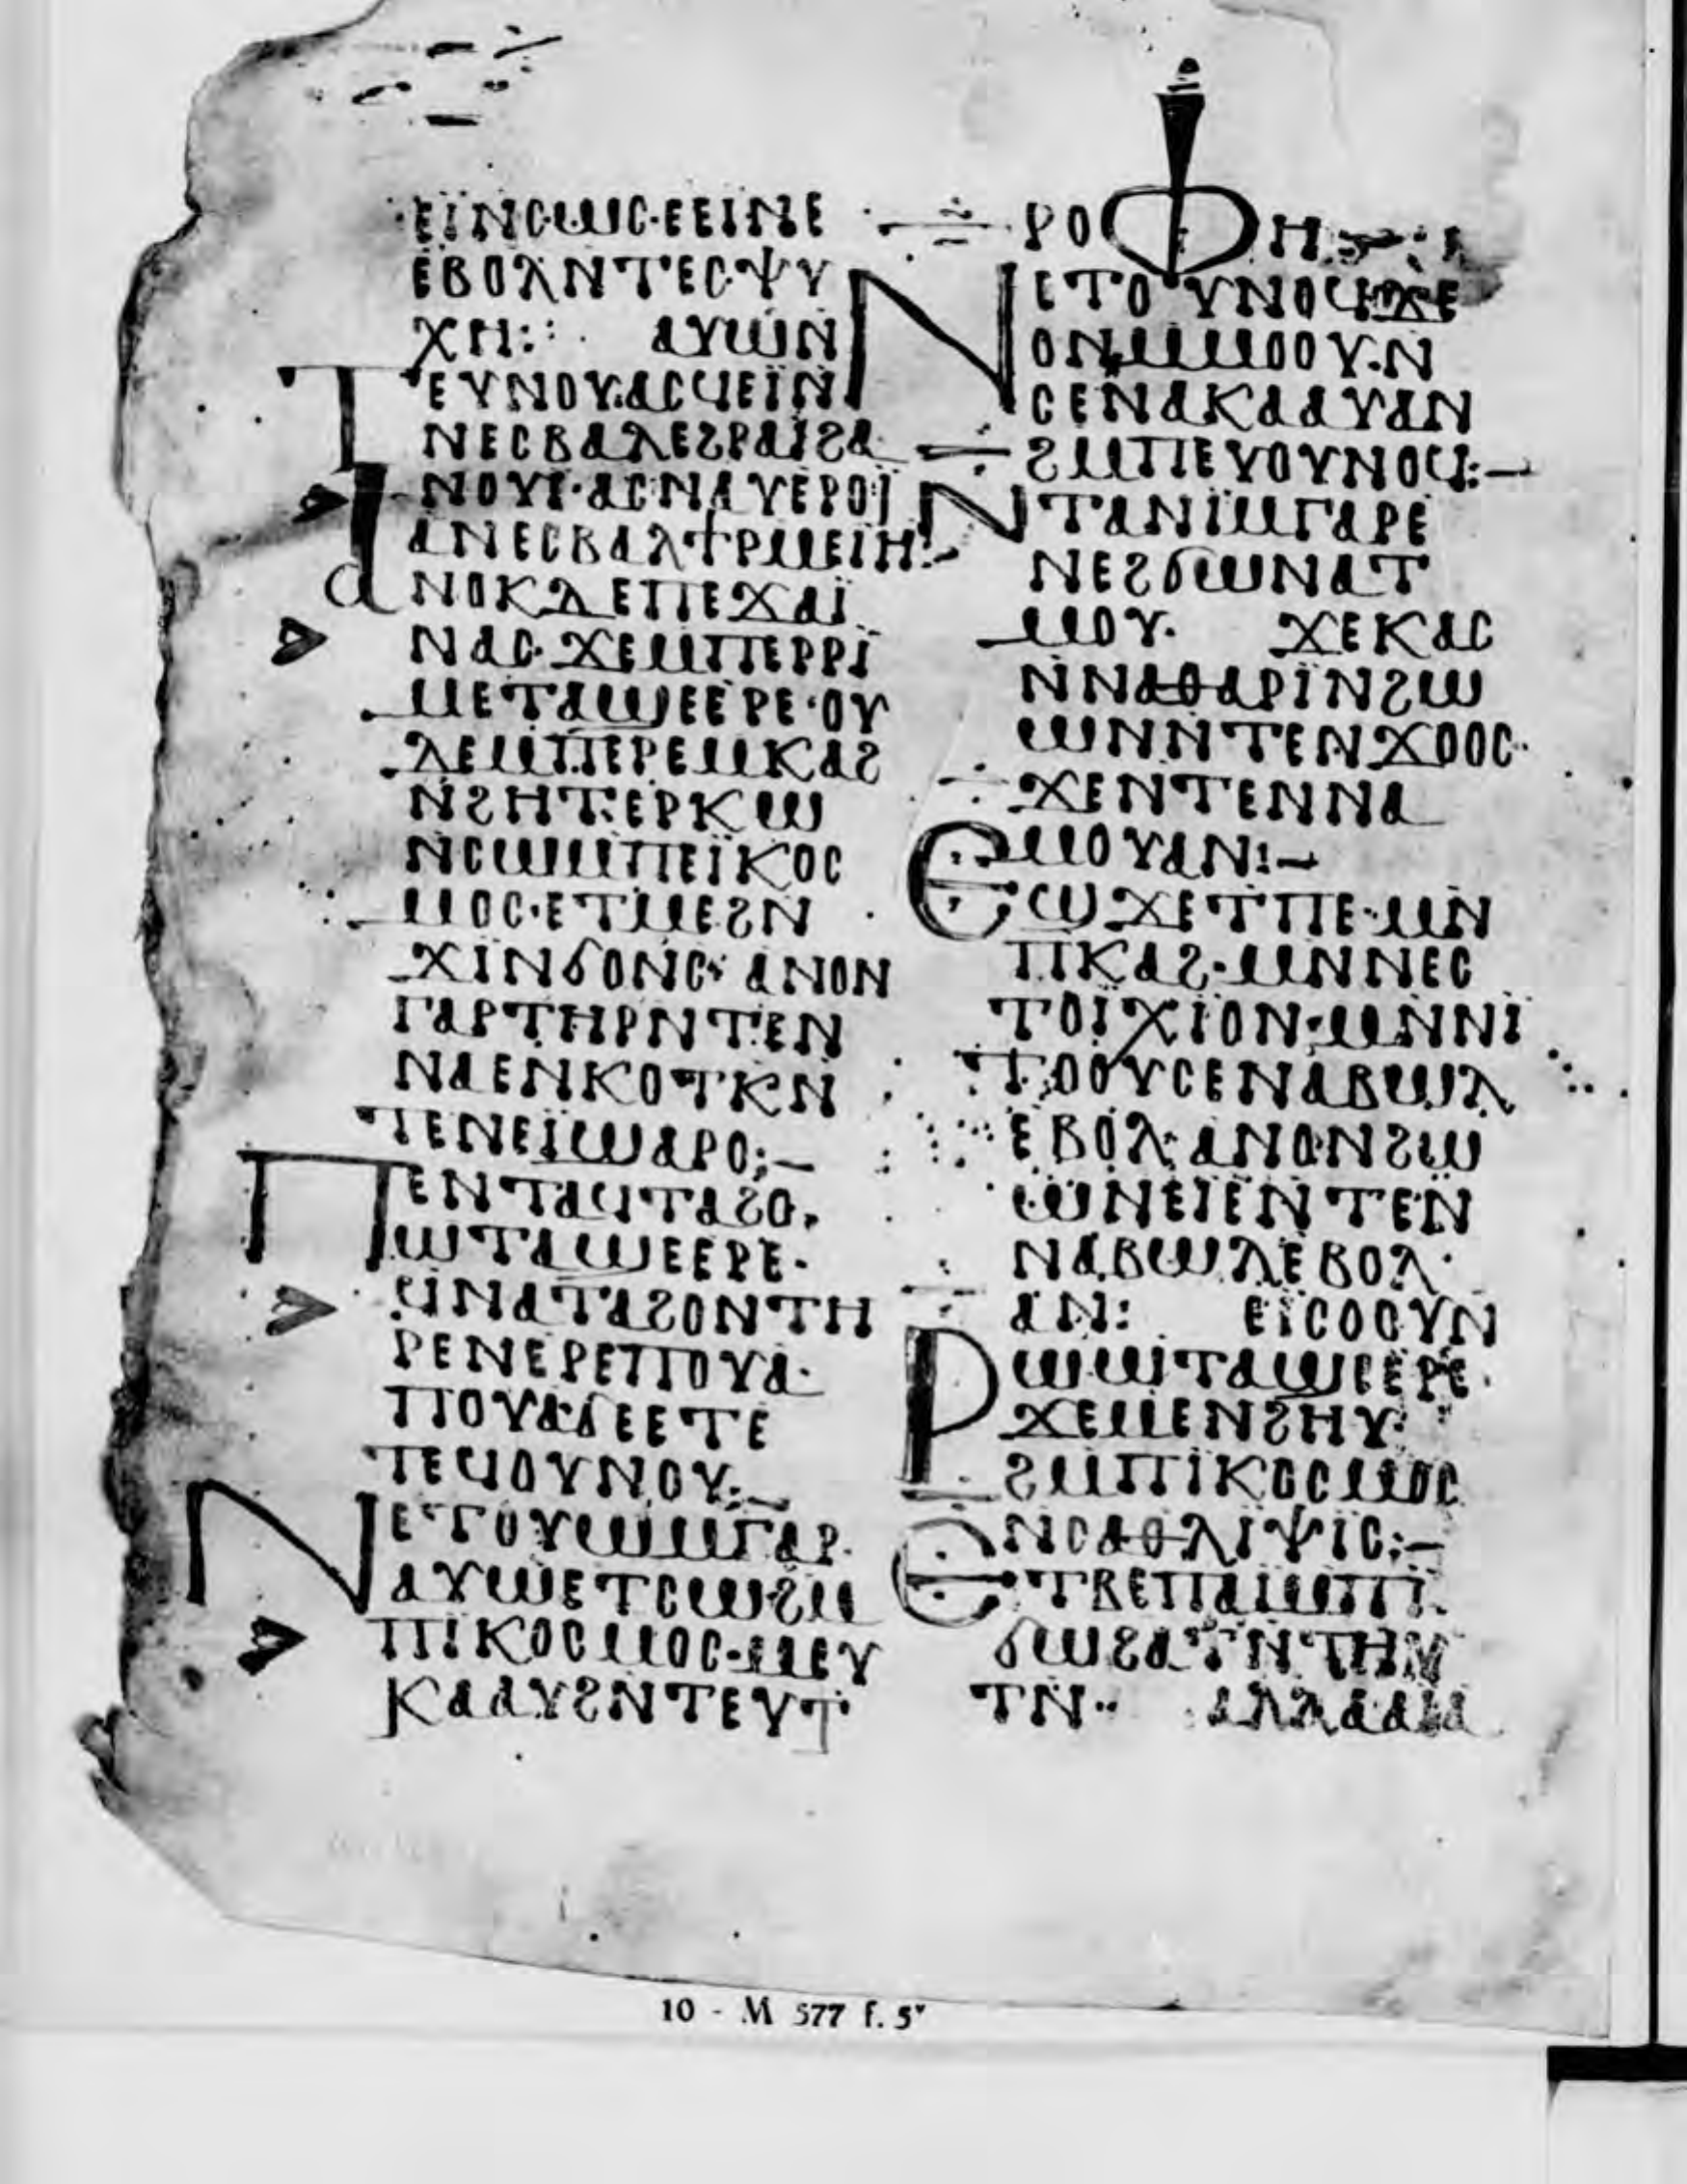 ⲉⲓ̈ⲛⲥⲱⲥ·ⲉⲉⲓⲛⲉ
ⲉⲃⲟⲗⲛⲧⲉⲥⲯⲩ
ⲭⲏ: ⲁⲩⲱⲛ
ⲧⲉⲩⲛⲟⲩ·ⲁⲥϥⲉⲓ̈ⲛ
ⲛⲉⲥⲃⲁⲗⲉϩⲣⲁⲓ̈ϩⲁ
ⲛⲟⲩⲓ·ⲁⲥⲛⲁⲩⲉⲣⲟⲓ̈
ⲁⲛⲉⲥⲃⲁⲗϯⲣⲙⲉⲓⲏ:-
ⲁⲛⲟⲕⲇⲉⲡⲉϫⲁⲓ̈
ⲛⲁⲥ·ϫⲉⲙⲡⲉⲣⲣⲓ
ⲙⲉⲧⲁϣⲉⲉⲣⲉ·ⲟⲩ
ⲇⲉⲙⲡⲉⲣⲉⲙⲕⲁϩ
ⲛϩⲏⲧ·ⲉⲣⲕⲱ
ⲛⲥⲱⲙⲡⲉⲓ̈ⲕⲟⲥ
ⲙⲟⲥ·ⲉⲧⲙⲉϩⲛ
ϫⲓⲛϭⲟⲛⲥ· ⲁⲛⲟⲛ
ⲅⲁⲣⲧⲏⲣⲛⲧⲉⲛ
ⲛⲁⲉⲛⲕⲟⲧⲕⲛ
ⲧⲉⲛⲉⲓ̈ϣⲁⲣⲟ:-
ⲡⲉⲛⲧⲁϥⲧⲁϩⲟ·
ⲱⲧⲁϣⲉⲉⲣⲉ·
ϥⲛⲁⲧⲁϩⲟⲛⲧⲏ
ⲣⲉⲛⲉⲣⲉⲡⲟⲩⲁ·
ⲡⲟⲩⲁϭⲉⲉⲧⲉ
ⲧⲉϥⲟⲩⲛⲟⲩ:-
ⲛⲉⲧⲟⲩⲱⲙⲅⲁⲣ·
ⲁⲩⲱⲉⲧⲥⲱϩⲙ
ⲡⲓⲕⲟⲥⲙⲟⲥ·ⲙⲉⲩ
ⲕⲁⲁⲩϩⲛⲧⲉⲩⲧ
ⲣⲟⲫⲏ
ⲛⲉⲧⲟⲩⲛⲟϥϫⲉ
ⲟⲛⲙⲙⲟⲟⲩ·ⲛ
ⲥⲉⲛⲁⲕⲁⲁⲩⲁⲛ
ϩⲙⲡⲉⲩⲟⲩⲛⲟϥ:-
ⲛⲧⲁⲛⲓ̈ⲙⲅⲁⲣⲉ
ⲛⲉϩϭⲱⲛⲁⲧ
ⲙⲟⲩ· ϫⲉⲕⲁⲥ
ⲛⲛⲁⲑⲁⲣⲓⲛϩⲱ
ⲱⲛⲛⲧⲉⲛϫⲟⲟⲥ·
ϫⲉⲛⲧⲉⲛⲛⲁ
ⲙⲟⲩⲁⲛ:-
ⲉϣϫⲉⲧⲡⲉ·ⲙⲛ
ⲡⲕⲁϩ·ⲙⲛⲛⲉⲥ
ⲧⲟⲓ̈ⲭⲓⲟⲛ·ⲙⲛⲛⲓ
ⲧⲟⲟⲩⲥⲉⲛⲁⲃⲱⲗ
ⲉⲃⲟⲗ·ⲁⲛⲟⲛϩⲱ
ⲱⲛⲉⲓⲉⲛⲧⲉⲛ
ⲛⲁⲃⲱⲗⲉⲃⲟⲗ·
ⲁⲛ: ⲉⲓⲥⲟⲟⲩⲛ
ⲣⲱⲱⲧⲁϣⲉⲉⲣⲉ·
ϫⲉⲙⲉⲛϩⲏⲩ
ϩⲙⲡⲓⲕⲟⲥⲙⲟⲥ
ⲉⲛⲥⲁⲑⲗⲓⲯⲓⲥ:-
ⲉⲧⲃⲉⲡⲁⲓⲙⲡⲓ
ϭⲱϩⲁⲧⲛⲧⲏⲩ
ⲧⲛ·· ⲁⲗⲗⲁⲁ
10 - M 577 f. 5ᵛ